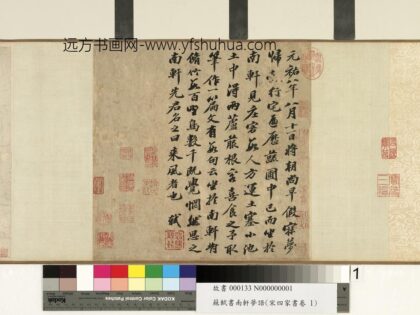 远方书画网-www.yfshuhua.com
元祐八年八月十一日將朝尚早假寐夢
歸縠行宅遍歷蔬圃中已而坐於
南軒見莊客數人方運土塞小池
土中得兩蘆菔根客喜食之予取
筆作一篇文有數句云坐於南軒對
脩竹數百野鳥數千既覺惘然思之
南軒先君名之曰來風者也 軾
1
KODAK Color Control Patches
故書 000133 N000000001
蘇軾書南軒夢語(宋四家書卷 1)